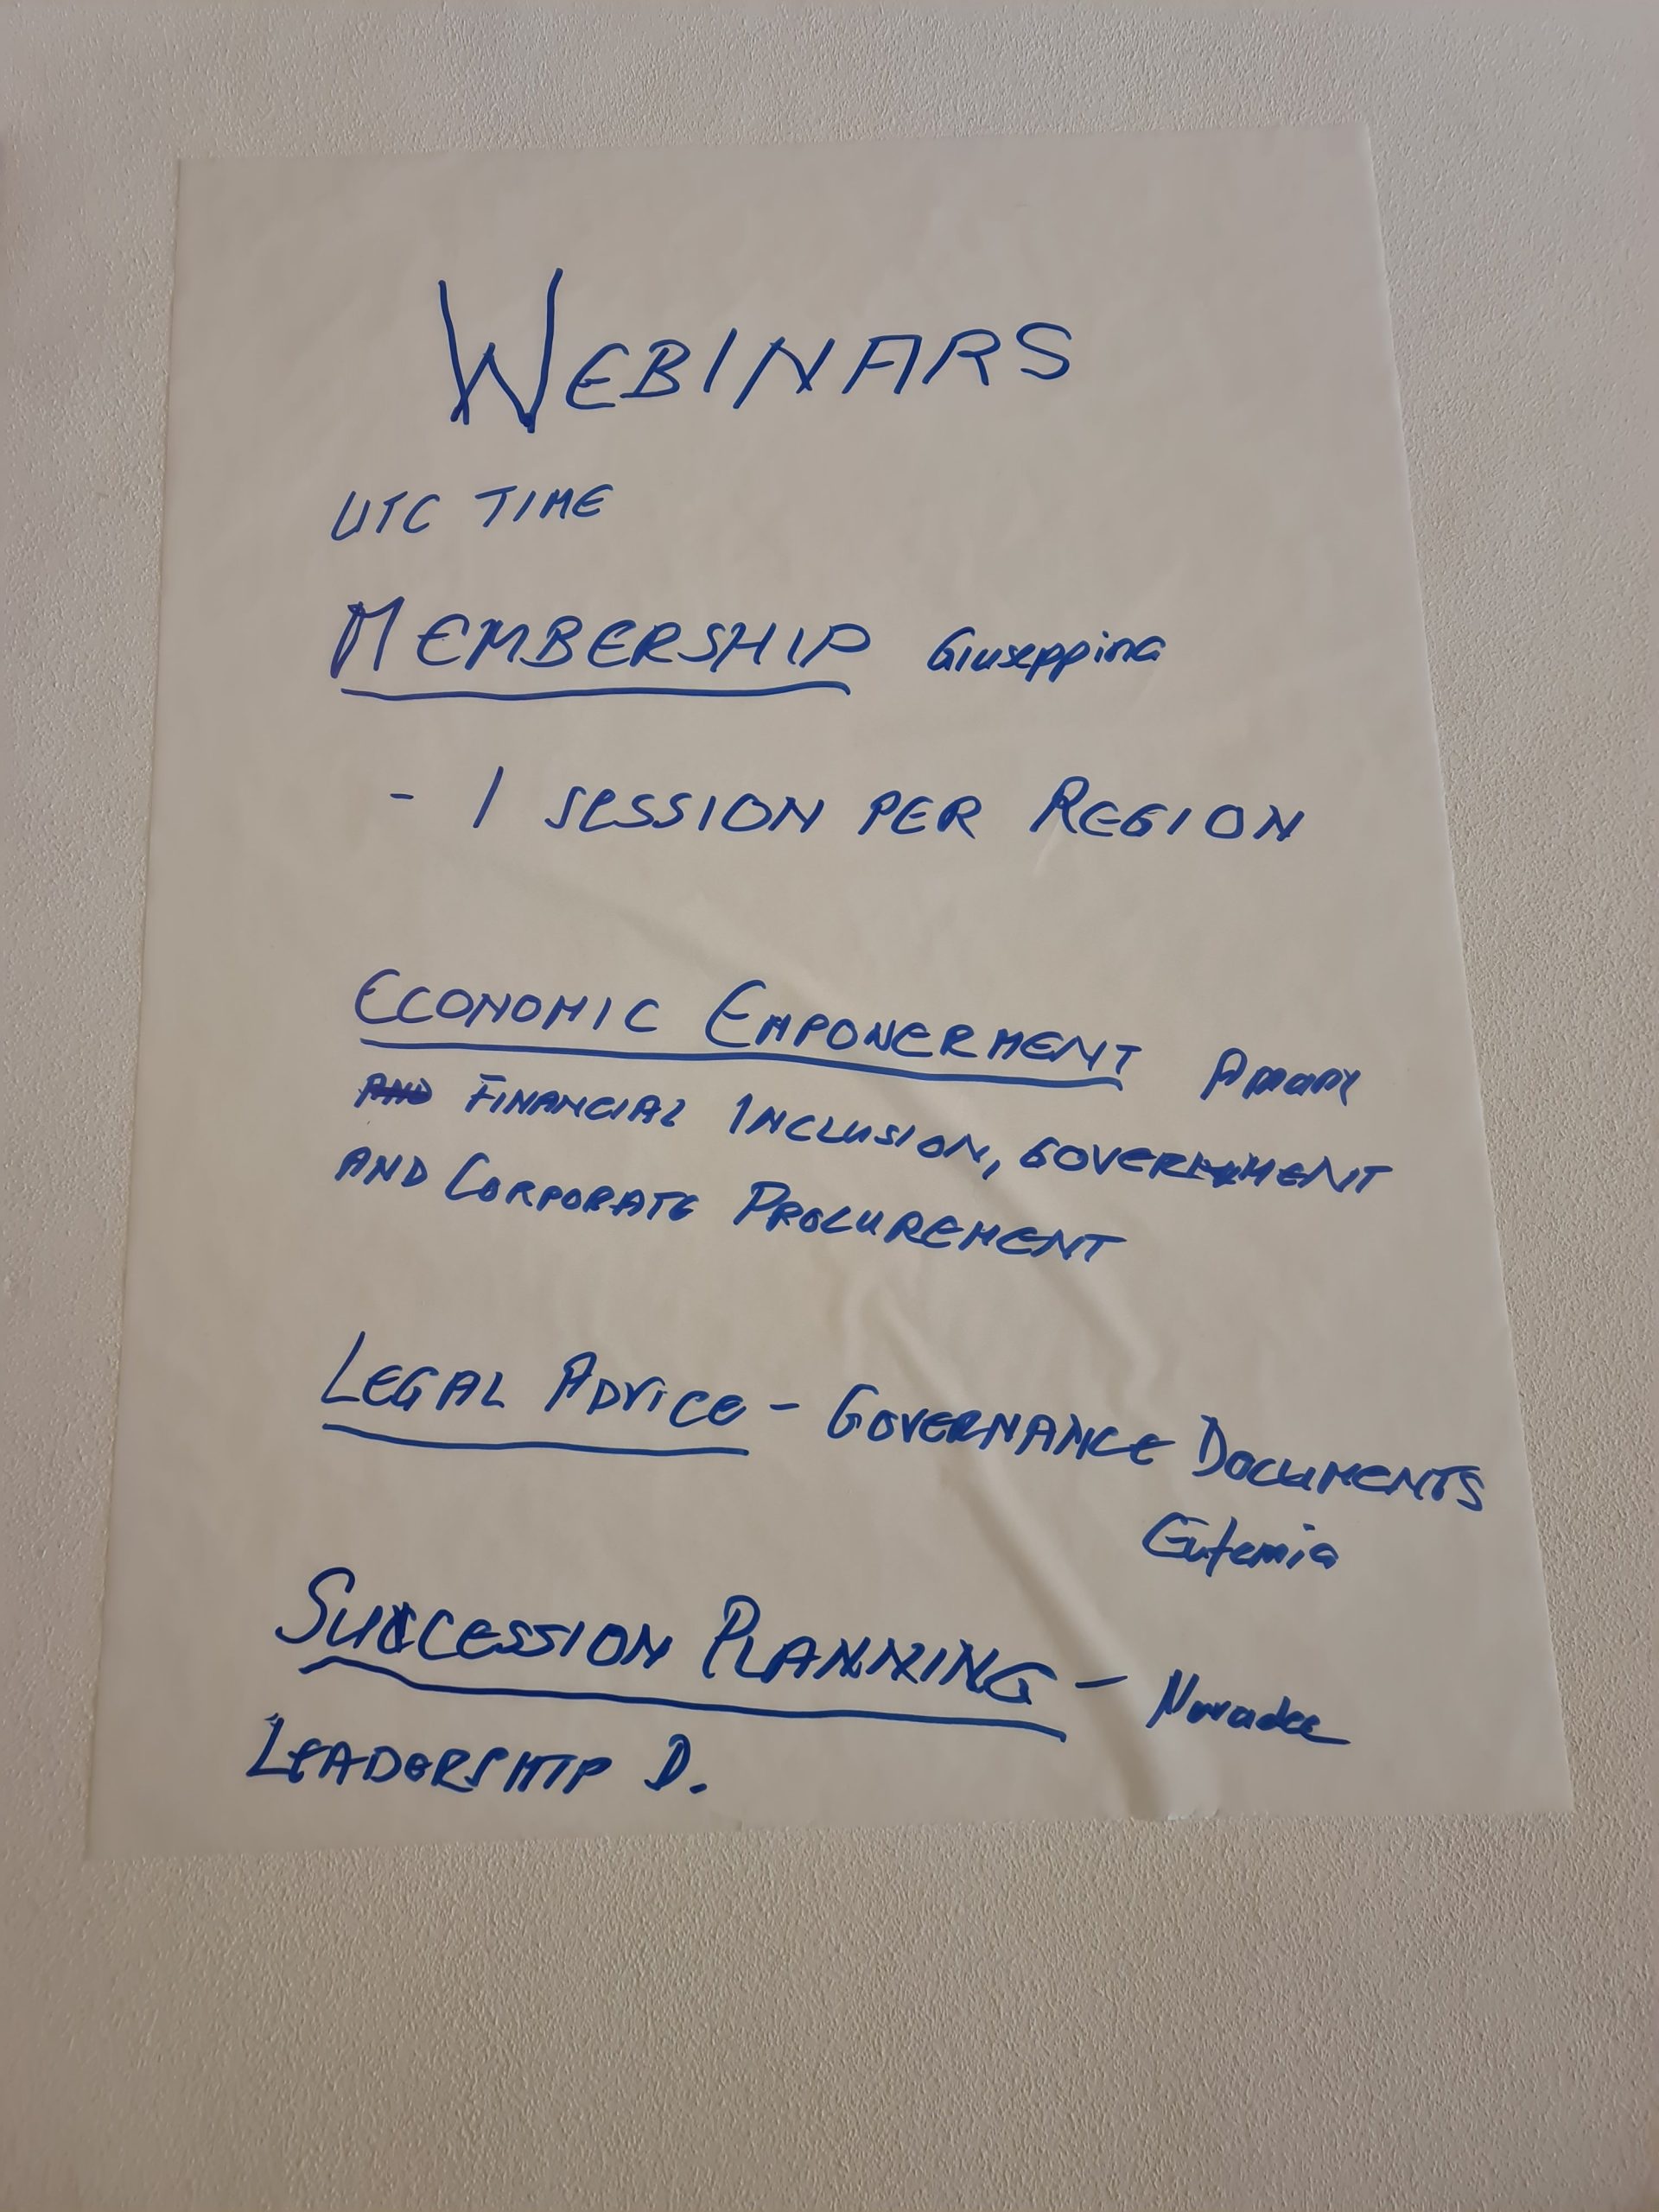 WEBINARS
UTC TIME
MEMBERSHIP Giuseppina
- 1 SESSION PER REGION
ECONOMIC EMPOWERMENT
FINANCIAL INCLUSION, GOVERNMENT
AND CORPORATE PROCUREMENT
LEGAL ADVICE - GOVERNANCE DOCUMENTS
Eufemia
SUCCESSION PLANNING -
LEADERSHIP D.